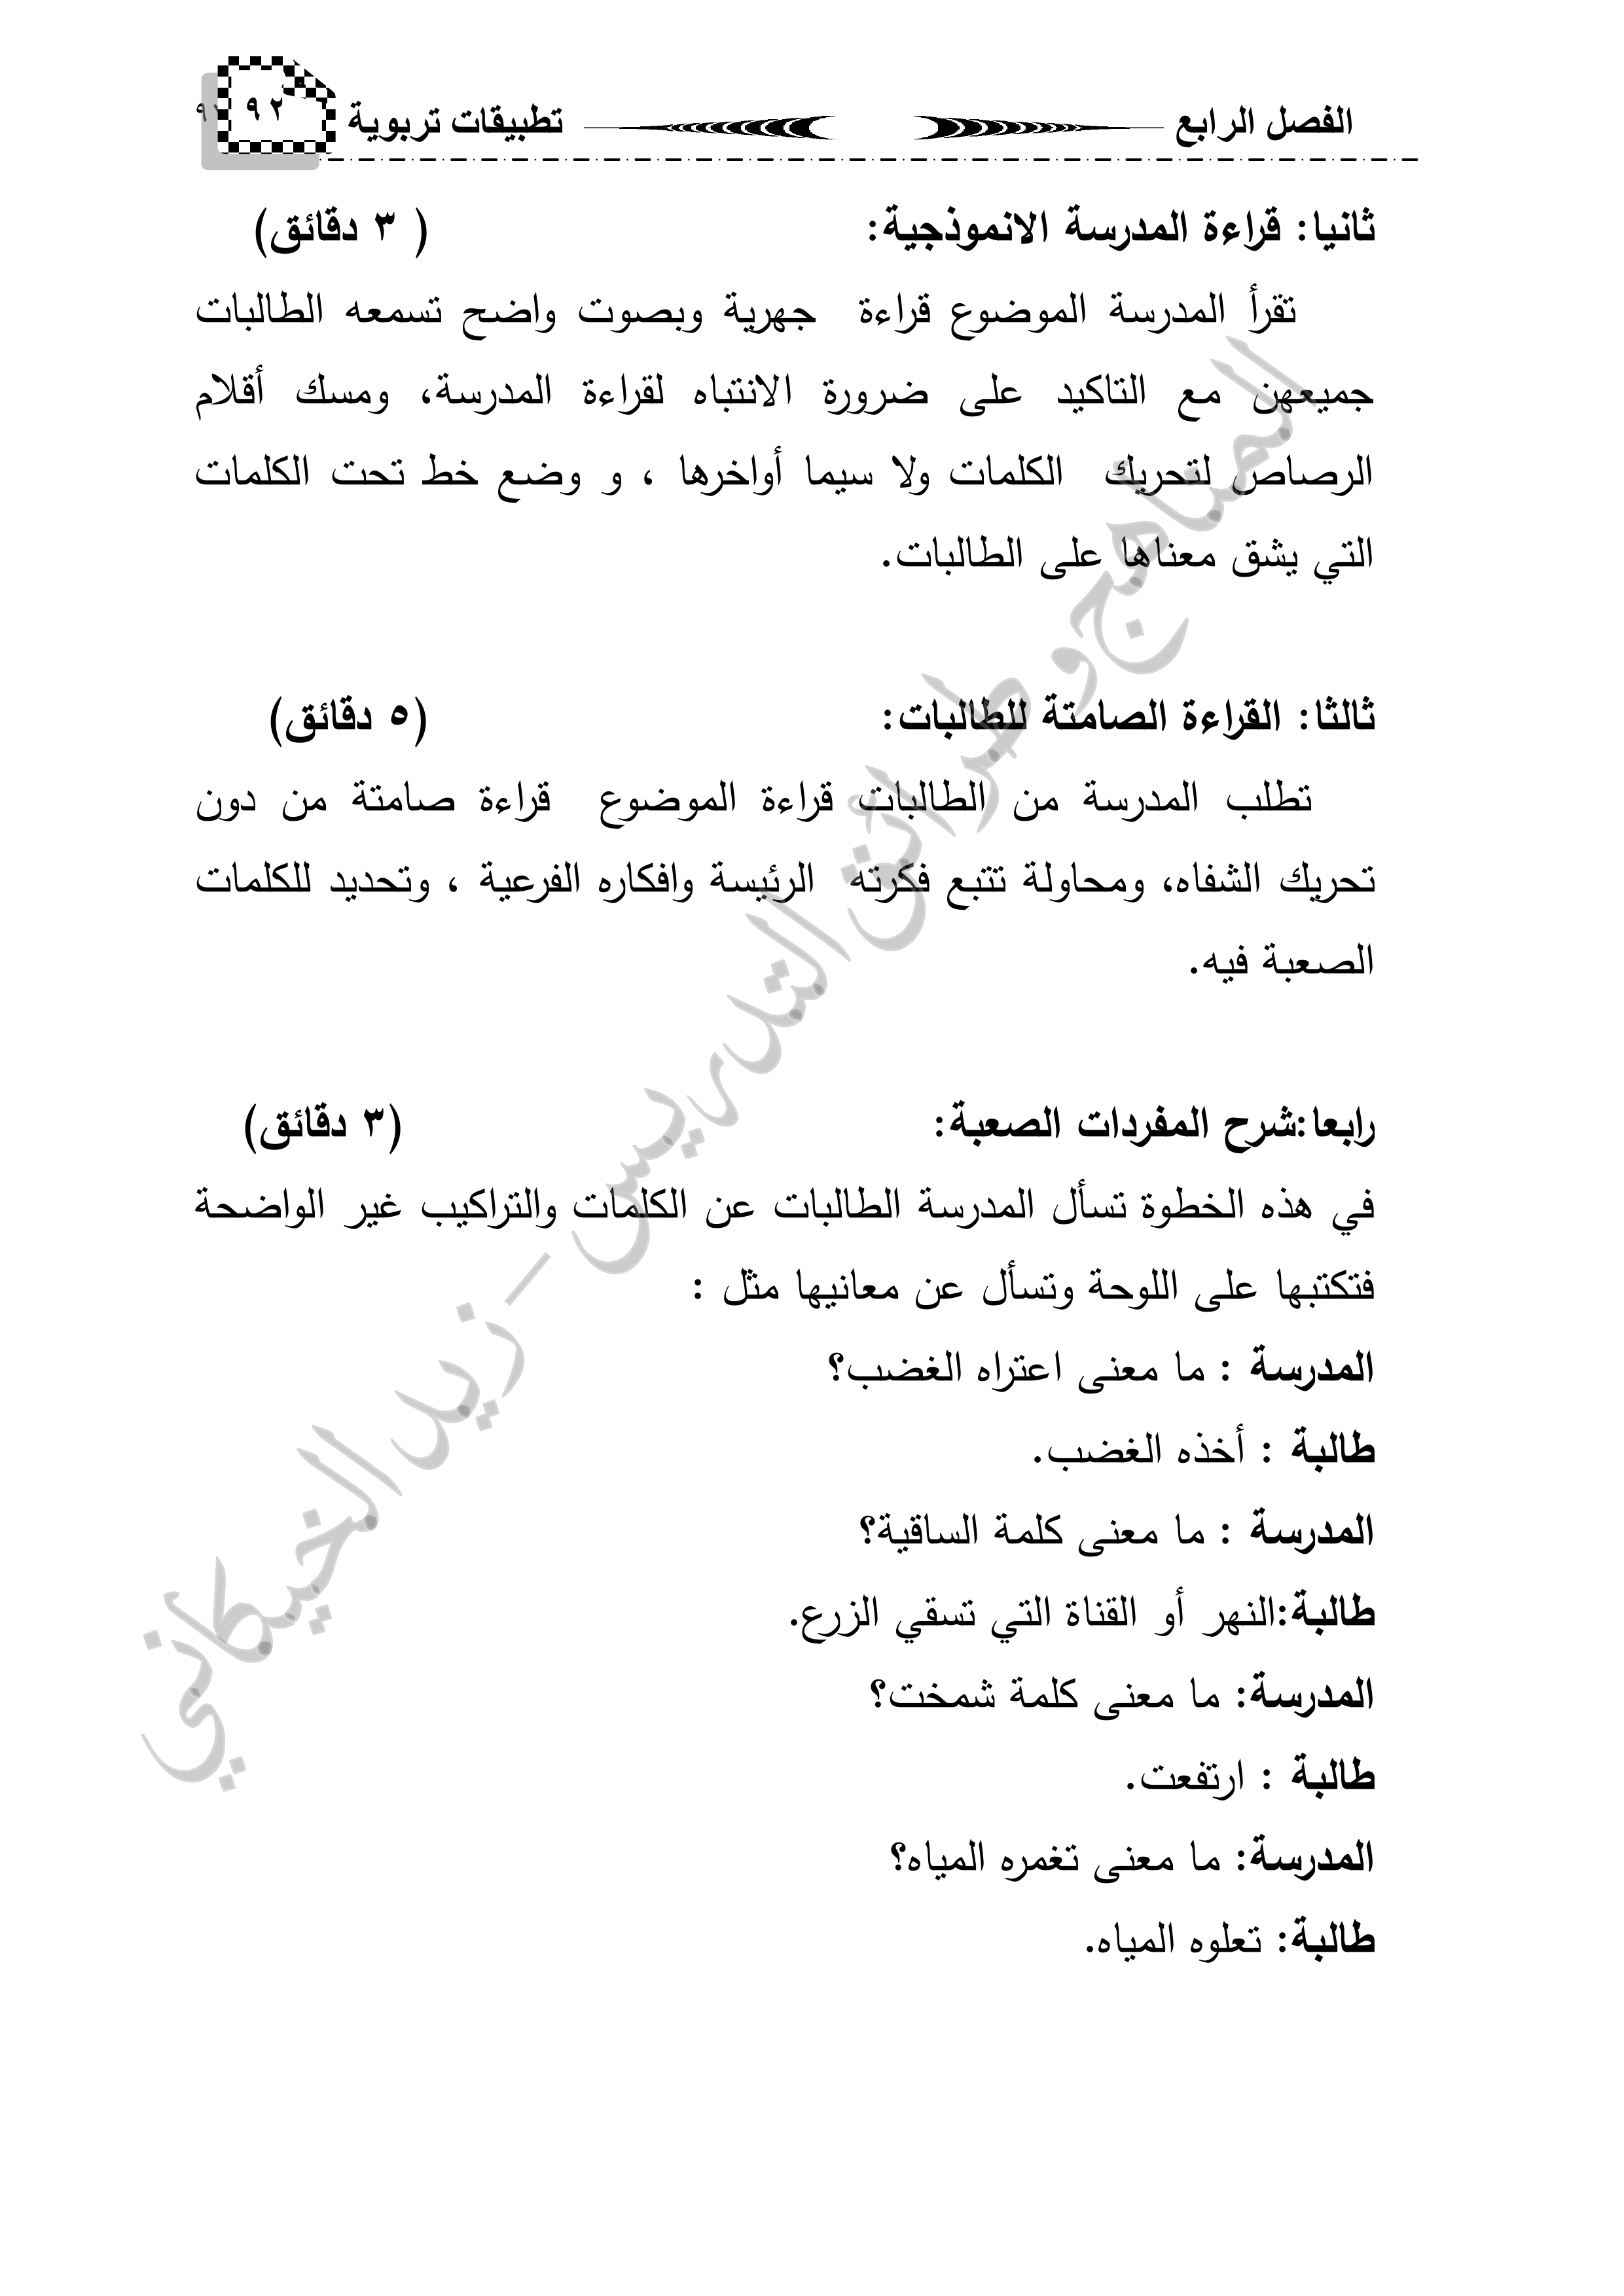 الفصل الرابع تطبيقات تربوية ٩٢
ثانيا: قراءة المدرسة الانموذجية: ( ٣ دقائق)
تقرأ المدرسة الموضوع قراءة جهرية وبصوت واضح تسمعه الطالبات
جميعهن مع التاكيد على ضرورة الانتباه لقراءة المدرسة، ومسك أقلام
الرصاص لتحريك الكلمات ولا سيما أواخرها ، و وضع خط تحت الكلمات
التي يشق معناها على الطالبات.
ثالثا: القراءة الصامتة للطالبات: (٥ دقائق)
تطلب المدرسة من الطالبات قراءة الموضوع قراءة صامتة من دون
تحريك الشفاه، ومحاولة تتبع فكرته الرئيسة وافكاره الفرعية ، وتحديد للكلمات
الصعبة فيه.
رابعا:شرح المفردات الصعبة: (٣ دقائق)
في هذه الخطوة تسأل المدرسة الطالبات عن الكلمات والتراكيب غير الواضحة
فتكتبها على اللوحة وتسأل عن معانيها مثل :
المدرسة : ما معنى اعتراه الغضب؟
طالبة : أخذه الغضب.
المدرسة : ما معنى كلمة الساقية؟
طالبة:النهر أو القناة التي تسقي الزرع.
المدرسة: ما معنى كلمة شمخت؟
طالبة : ارتفعت.
المدرسة: ما معنى تغمره المياه؟
طالبة: تعلوه المياه.
المناهج وطرائق التدريس - زيد الخيكاني